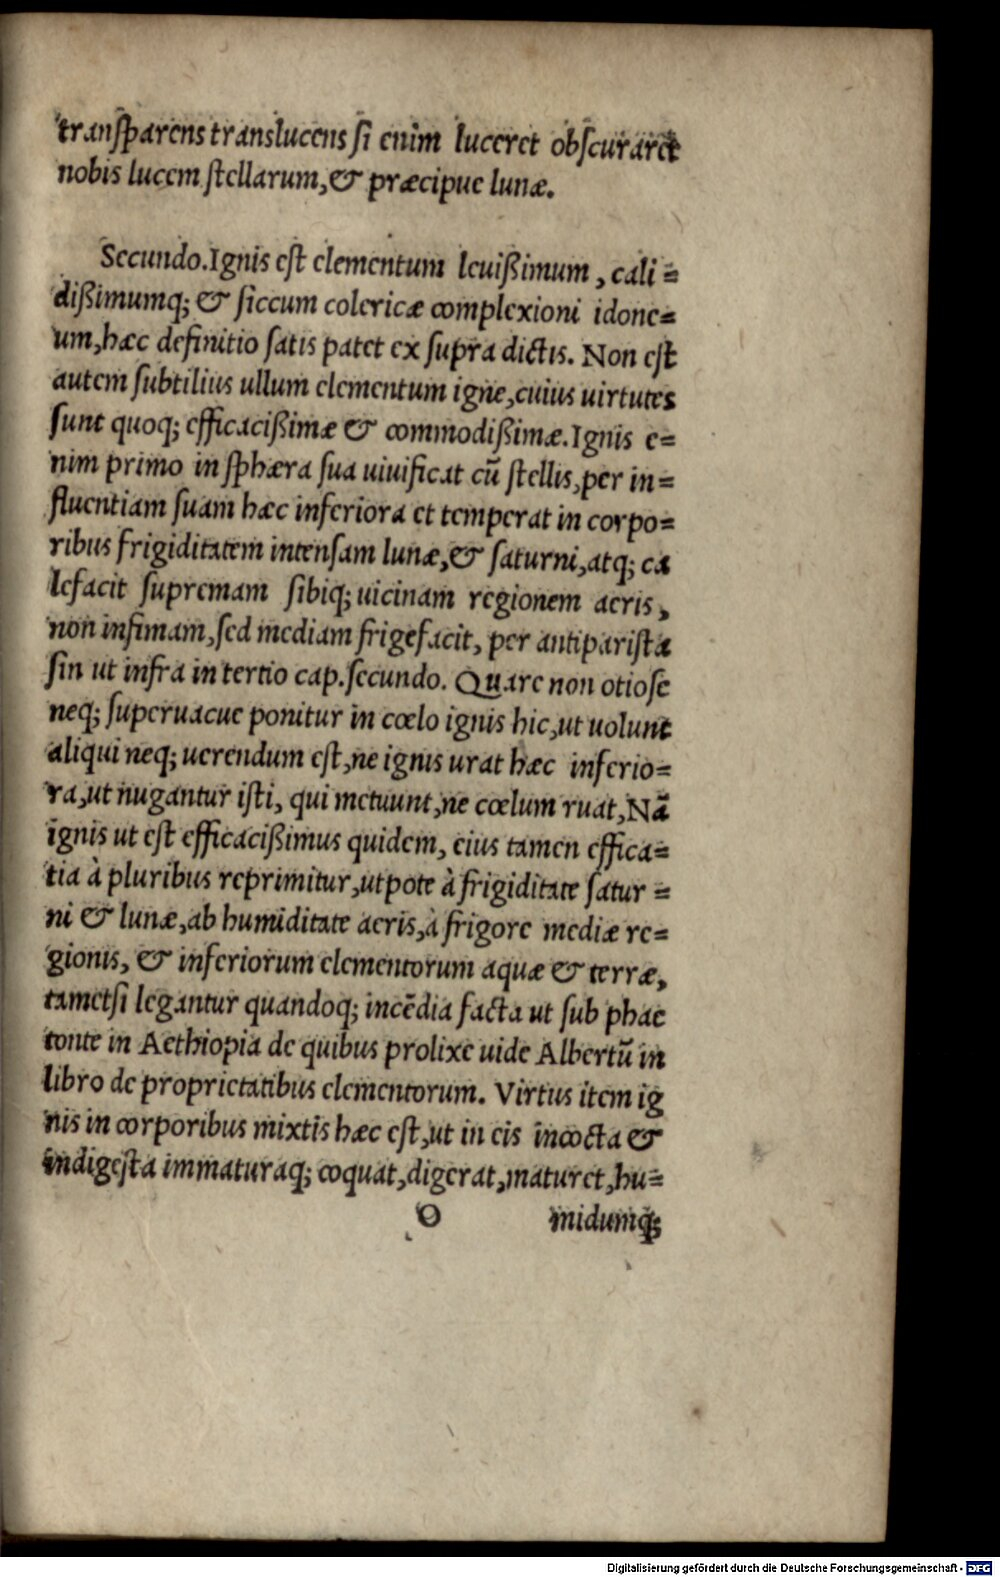 transparens translucens si enim luceret obscuraret
nobis lucem stellarum,& præcipue lunæ.
Secundo.Ignis est elementum leuißimum, cali=
dißimumq; & siccum colericæ complexioni idone=
um,hæc definitio satis patet ex supra dictis. Non est
autem subtilius ullum elementum igne,cuius uirtutes
sunt quoq; efficacißimæ & commodißimæ.Ignis e=
nim primo in sphæra sua uiuificat cū stellis,per in=
fluentiam suam hæc inferiora et temperat in corpo=
ribus frigiditatem intensam lunæ,& saturni,atq; ca
lefacit supremam sibiq; uicinam regionem aeris,
non infimam,sed mediam frigefacit, per antiparista
sin ut infra in tertio cap.secundo. Quare non otiose
neq; superuacue ponitur in cœlo ignis hic,ut uolunt
aliqui neq; uerendum est,ne ignis urat hæc inferio=
ra,ut nugantur isti, qui metuunt,ne cœlum ruat,Nā
ignis ut est efficacißimus quidem, eius tamen effica=
tia à pluribus reprimitur,utpote à frigiditate satur=
ni & lunæ,ab humiditate aeris,à frigore mediæ re=
gionis, & inferiorum elementorum aquæ & terræ,
tametsi legantur quandoq; incēdia facta ut sub phae
tonte in Aethiopia de quibus prolixe uide Albertū in
libro de proprietatibus elementorum. Virtus item ig
nis in corporibus mixtis hæc est,ut in eis incocta &
indigesta immaturaq; coquat,digerat,maturet,hu=
O midumq;
Digitalisierung gefördert durch die Deutsche Forschungsgemeinschaft - DFG